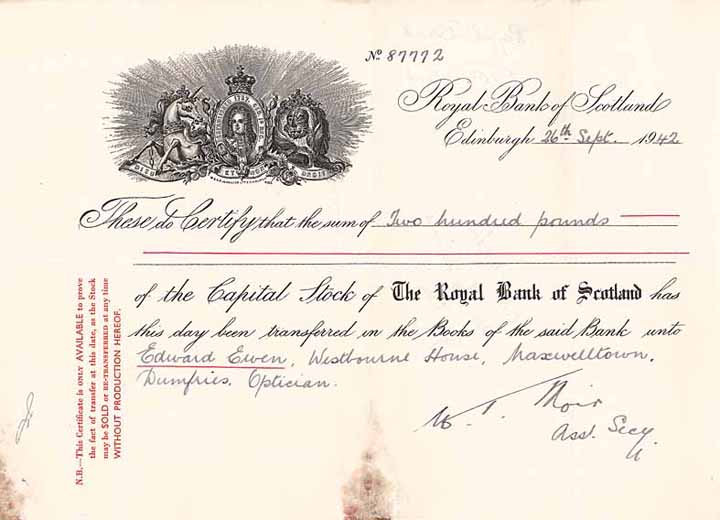 No. 87772
Royal Bank of Scotland
Edinburgh 26th Sept. 1942
These do Certify that the sum of Two hundred pounds
of the Capital Stock of The Royal Bank of Scotland has
this day been transferred in the Books of the said Bank unto
Edward Ewen, Westbourne House, Maxwelltown,
Dumfries, Optician.
W. T. Moir
Asst. Secy.
N.B.—This Certificate is ONLY AVAILABLE to prove
the fact of transfer at this date, as the Stock
may be SOLD or RE-TRANSFERRED at any time
WITHOUT PRODUCTION HEREOF.